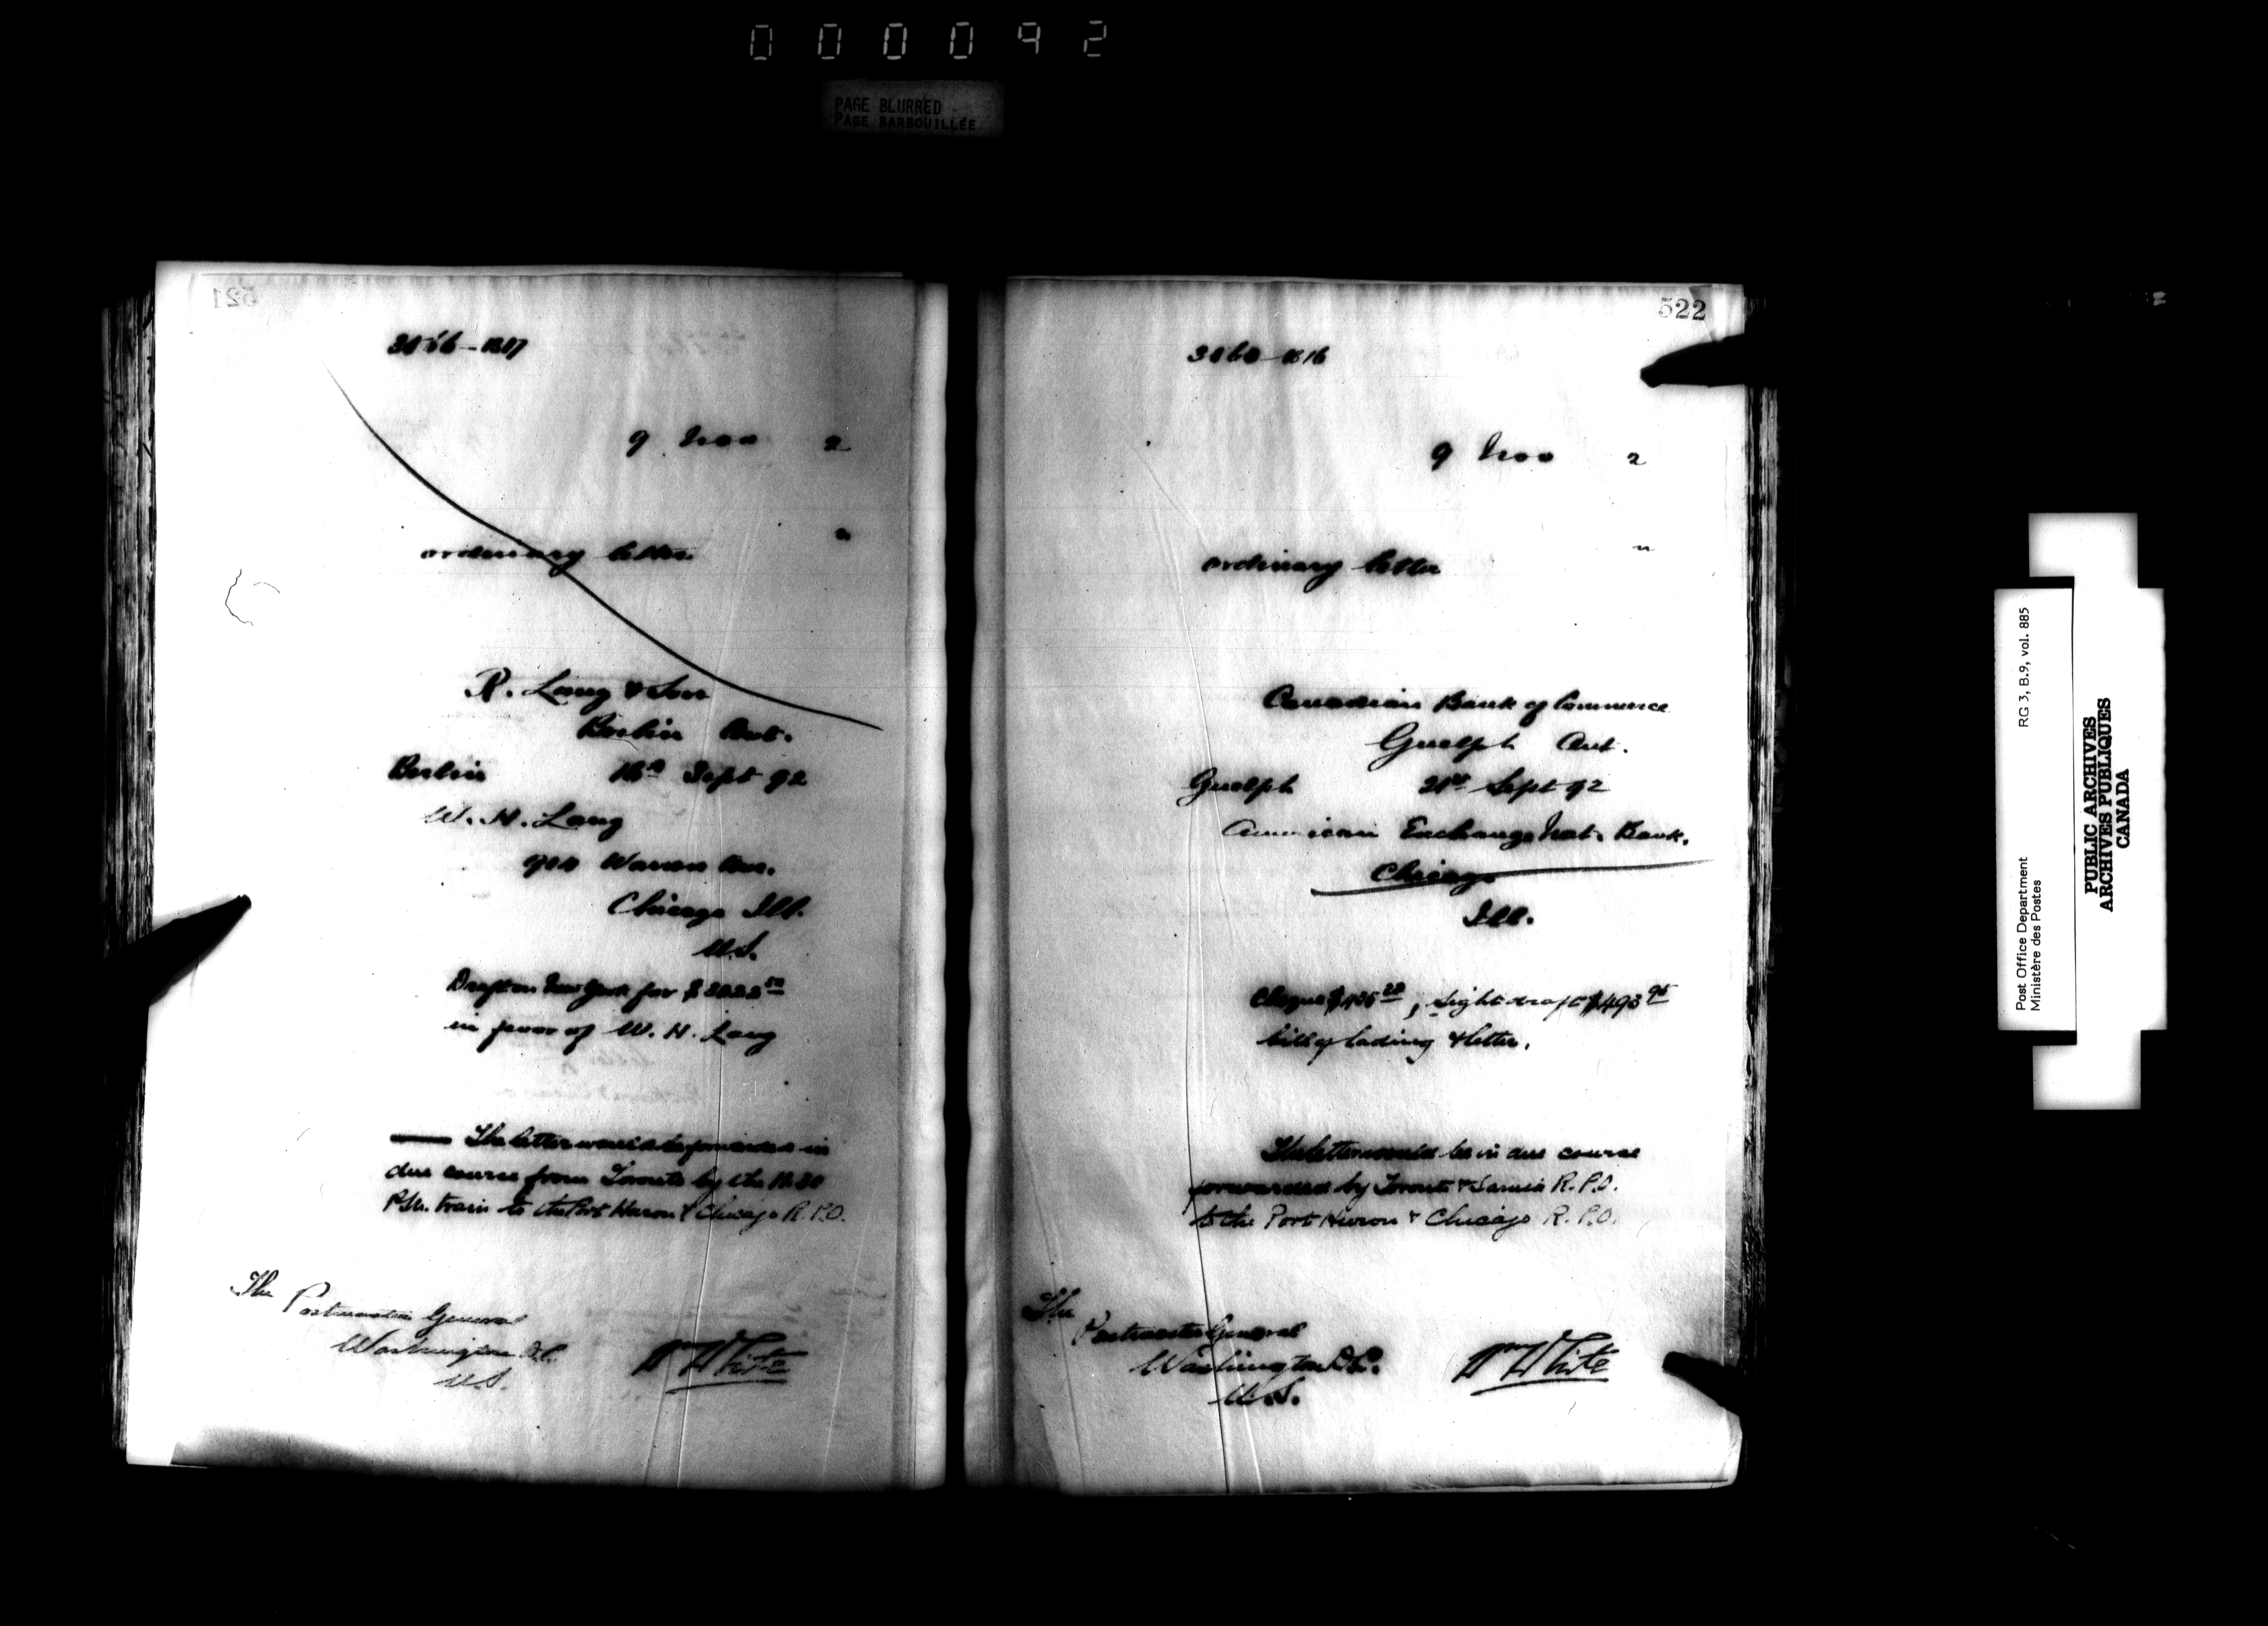 000092
PAGE BLURRED
PAGE BARBOUILLÉE
521
9 Nov 2
ordinary letter
R. Lang & Son
Berlin Ont.
Berlin Sept 92
W. H. Lang
Warren Ave.
Chicago Ill.
U.S.
Draft on New York for
in favor of W. H. Lang
The letter would be forwarded in
due course from Toronto by the 11.30
P.M. train to the Port Huron & Chicago R.P.O.
The
Postmaster General
Washington D.C.
U.S.
Wm White
522
9 Nov 2
ordinary letter
Canadian Bank of Commerce
Guelph Ont.
Guelph 21st Sept 92
American Exchange Nat. Bank.
Chicago
Ill.
Cheque , sight draft $493 95
bill of lading & letter.
The letter would be in due course
forwarded by Toronto & Sarnia R.P.O.
to the Port Huron & Chicago R.P.O.
The
Postmaster General
Washington D.C.
U.S.
Wm White
Post Office Department RG 3, B.9, vol. 885
Ministère des Postes
PUBLIC ARCHIVES
ARCHIVES PUBLIQUES
CANADA